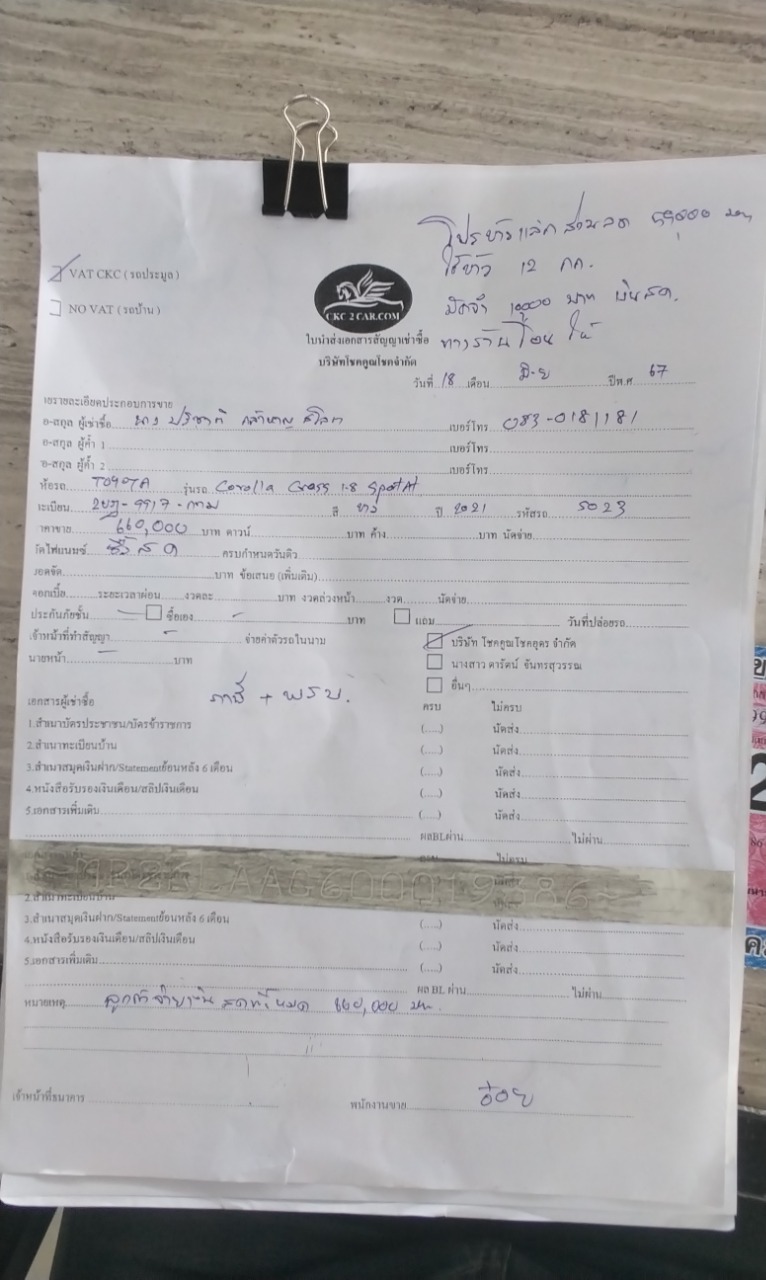 โปรข้าวแลกส่วนลด
ใช้ข้าว 12 กก.
VAT CKC (รถประมูล)
มัดจำ 10,000 บาท เงินสด.
NO VAT (รถบ้าน)
CKC 2 CAR.COM
ทางร้านโอนให้
ใบนำส่งเอกสารสัญญาเช่าซื้อ
บริษัทโชคคูณโชคจำกัด
วันที่ 18 เดือน มิ.ย ปีพ.ศ 67
รายละเอียดประกอบการขาย
อ-สกุล ผู้เช่าซื้อ นาง เบอร์โทร 083-0181181
อ-สกุล ผู้ค้ำ 1 เบอร์โทร
อ-สกุล ผู้ค้ำ 2 เบอร์โทร
ยี่ห้อรถ TOYOTA รุ่นรถ Corolla Cross 1.8 Spot At
ทะเบียน กทม สี ขาว ปี 2021 รหัสรถ 5023
ราคาขาย 660,000 บาท ดาวน์ บาท ค้าง บาท นัดจ่าย
จัดไฟแนนซ์ ซื้อสด ครบกำหนดวันดิว
ยอดจัด บาท ข้อเสนอ (เพิ่มเติม)
ดอกเบี้ย ระยะเวลาผ่อน งวดละ บาท งวดล่วงหน้า งวด นัดจ่าย
ประกันภัยชั้น ซื้อเอง บาท แถม วันที่ปล่อยรถ
เจ้าหน้าที่ทำสัญญา จ่ายค่าตัวรถในนาม บริษัท โชคคูณโชคอุดร จำกัด
นายหน้า บาท นางสาว ดารัตน์ จันทรสุวรรณ
อื่นๆ
เอกสารผู้เช่าซื้อ ภาษี + พรบ. ครบ ไม่ครบ
1.สำเนาบัตรประชาชน/บัตรข้าราชการ (.....) นัดส่ง
2.สำเนาทะเบียนบ้าน (.....) นัดส่ง
3.สำเนาสมุดเงินฝาก/Statementย้อนหลัง 6 เดือน (.....) นัดส่ง
4.หนังสือรับรองเงินเดือน/สลิปเงินเดือน (.....) นัดส่ง
5.เอกสารเพิ่มเติม (.....) นัดส่ง
ผลBLผ่าน ไม่ผ่าน
2.สำเนาทะเบียนบ้าน นัดส่ง
3.สำเนาสมุดเงินฝาก/Statementย้อนหลัง 6 เดือน (.....) นัดส่ง
4.หนังสือรับรองเงินเดือน/สลิปเงินเดือน (.....) นัดส่ง
5.เอกสารเพิ่มเติม (.....) นัดส่ง
ผล BL ผ่าน ไม่ผ่าน
หมายเหตุ ลูกค้าจ่ายเงินสดทั้งหมด 660,000 บาท.
เจ้าหน้าที่ธนาคาร พนักงานขาย อ้อย